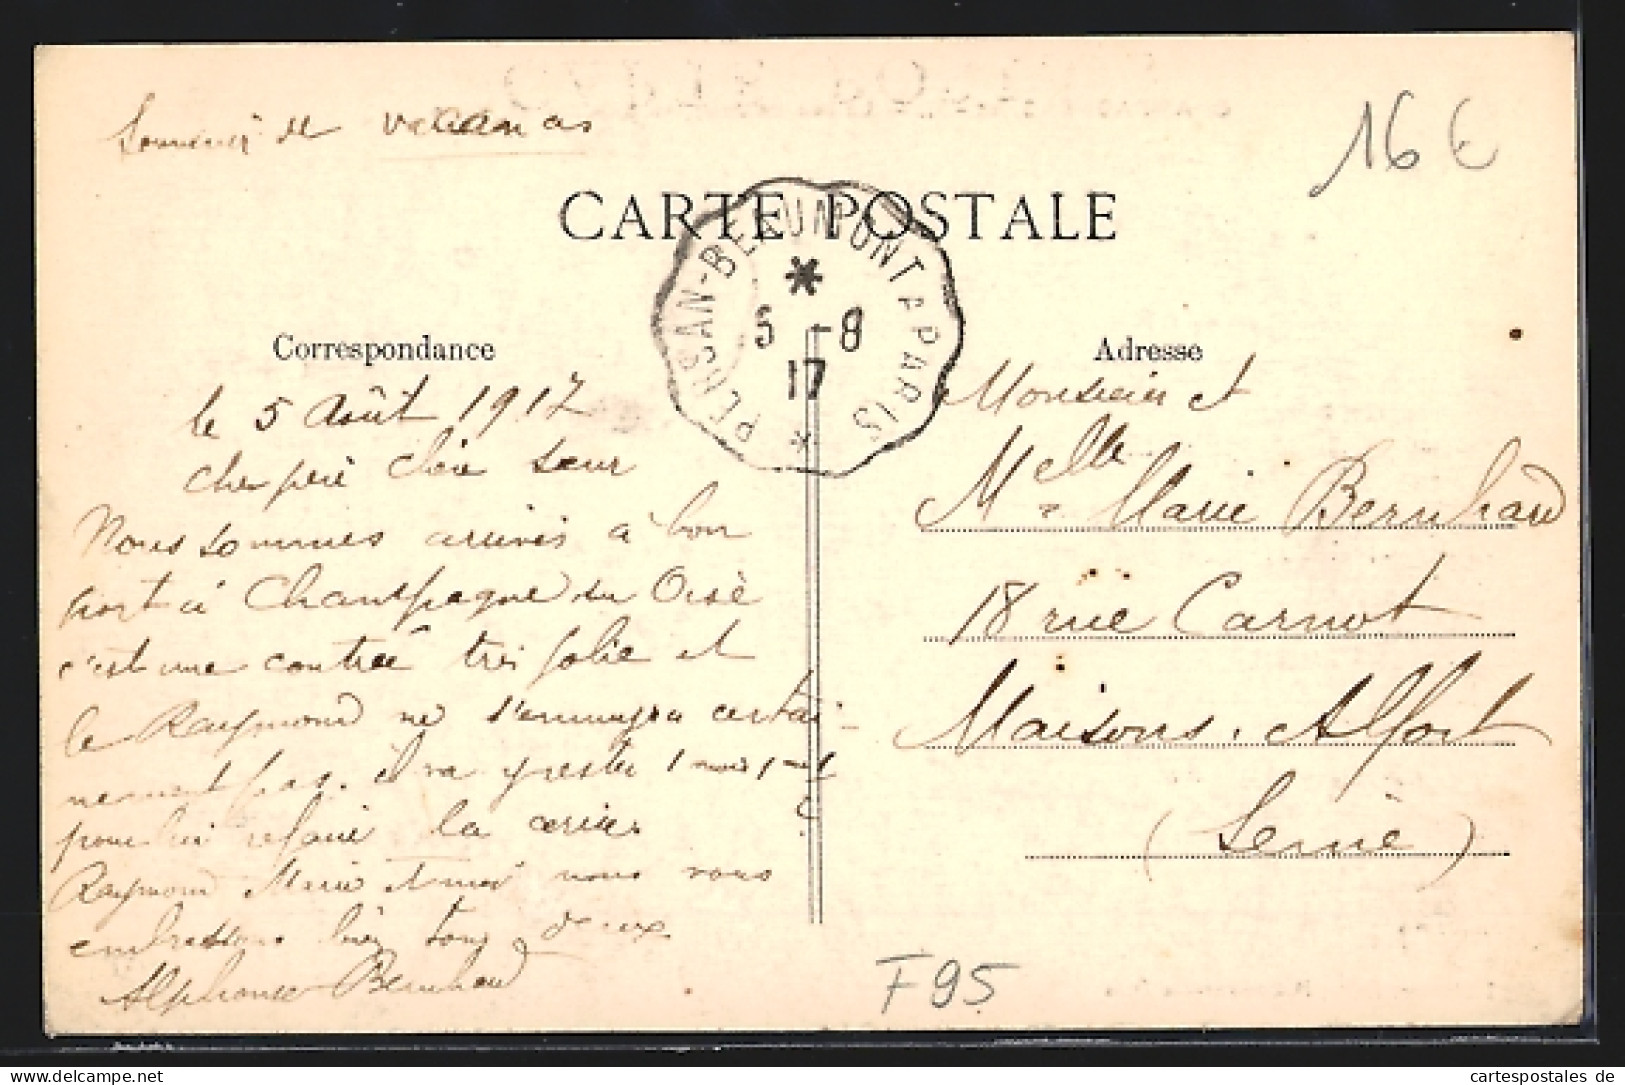 Souvenir de vacances
16 €
CARTE POSTALE
PERSAN-BEAUMONT A PARIS
5 -8
17
Correspondance
le 5 Août 1917
cher père chère sœur
Nous sommes arrivés à bon
port à Champagne sur Oise
c'est une contrée très jolie et
le Raymond ne s'ennuyra certai-
nement pas. il va y rester 1 mois
pour lui refaire la cerise
Raymond Marie et moi nous vous
embrassons bien tous deux
Alphonse Bernhard
Adresse
Monsieur et
Melle Marie Bernhard
18 rue Carnot
Maisons-Alfort
(Seine)
F95
delcampe.net
cartespostales de